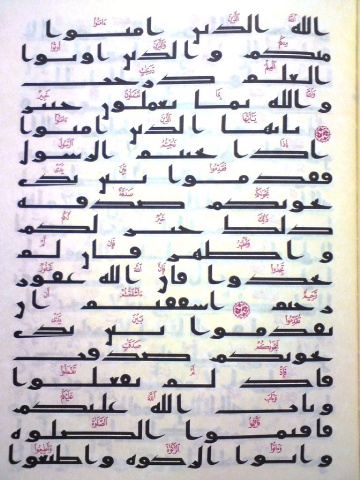 الله الذين امنوا
منكم والذين اوتوا
العلم درجت
والله بما تعملون خبير
يايها الذين امنوا
اذا نجيتم الرسول
فقدموا بين يدى
نجويكم صدقه
ذلك خير لكم
واطهر فان لم
تجدوا فان الله غفور
رحيم اشفقتم ان
تقدموا بين يدى
نجويكم صدقت
فاذ لم تفعلوا
وتاب الله عليكم
فاقيموا الصلوه
واتوا الزكوه واطيعوا